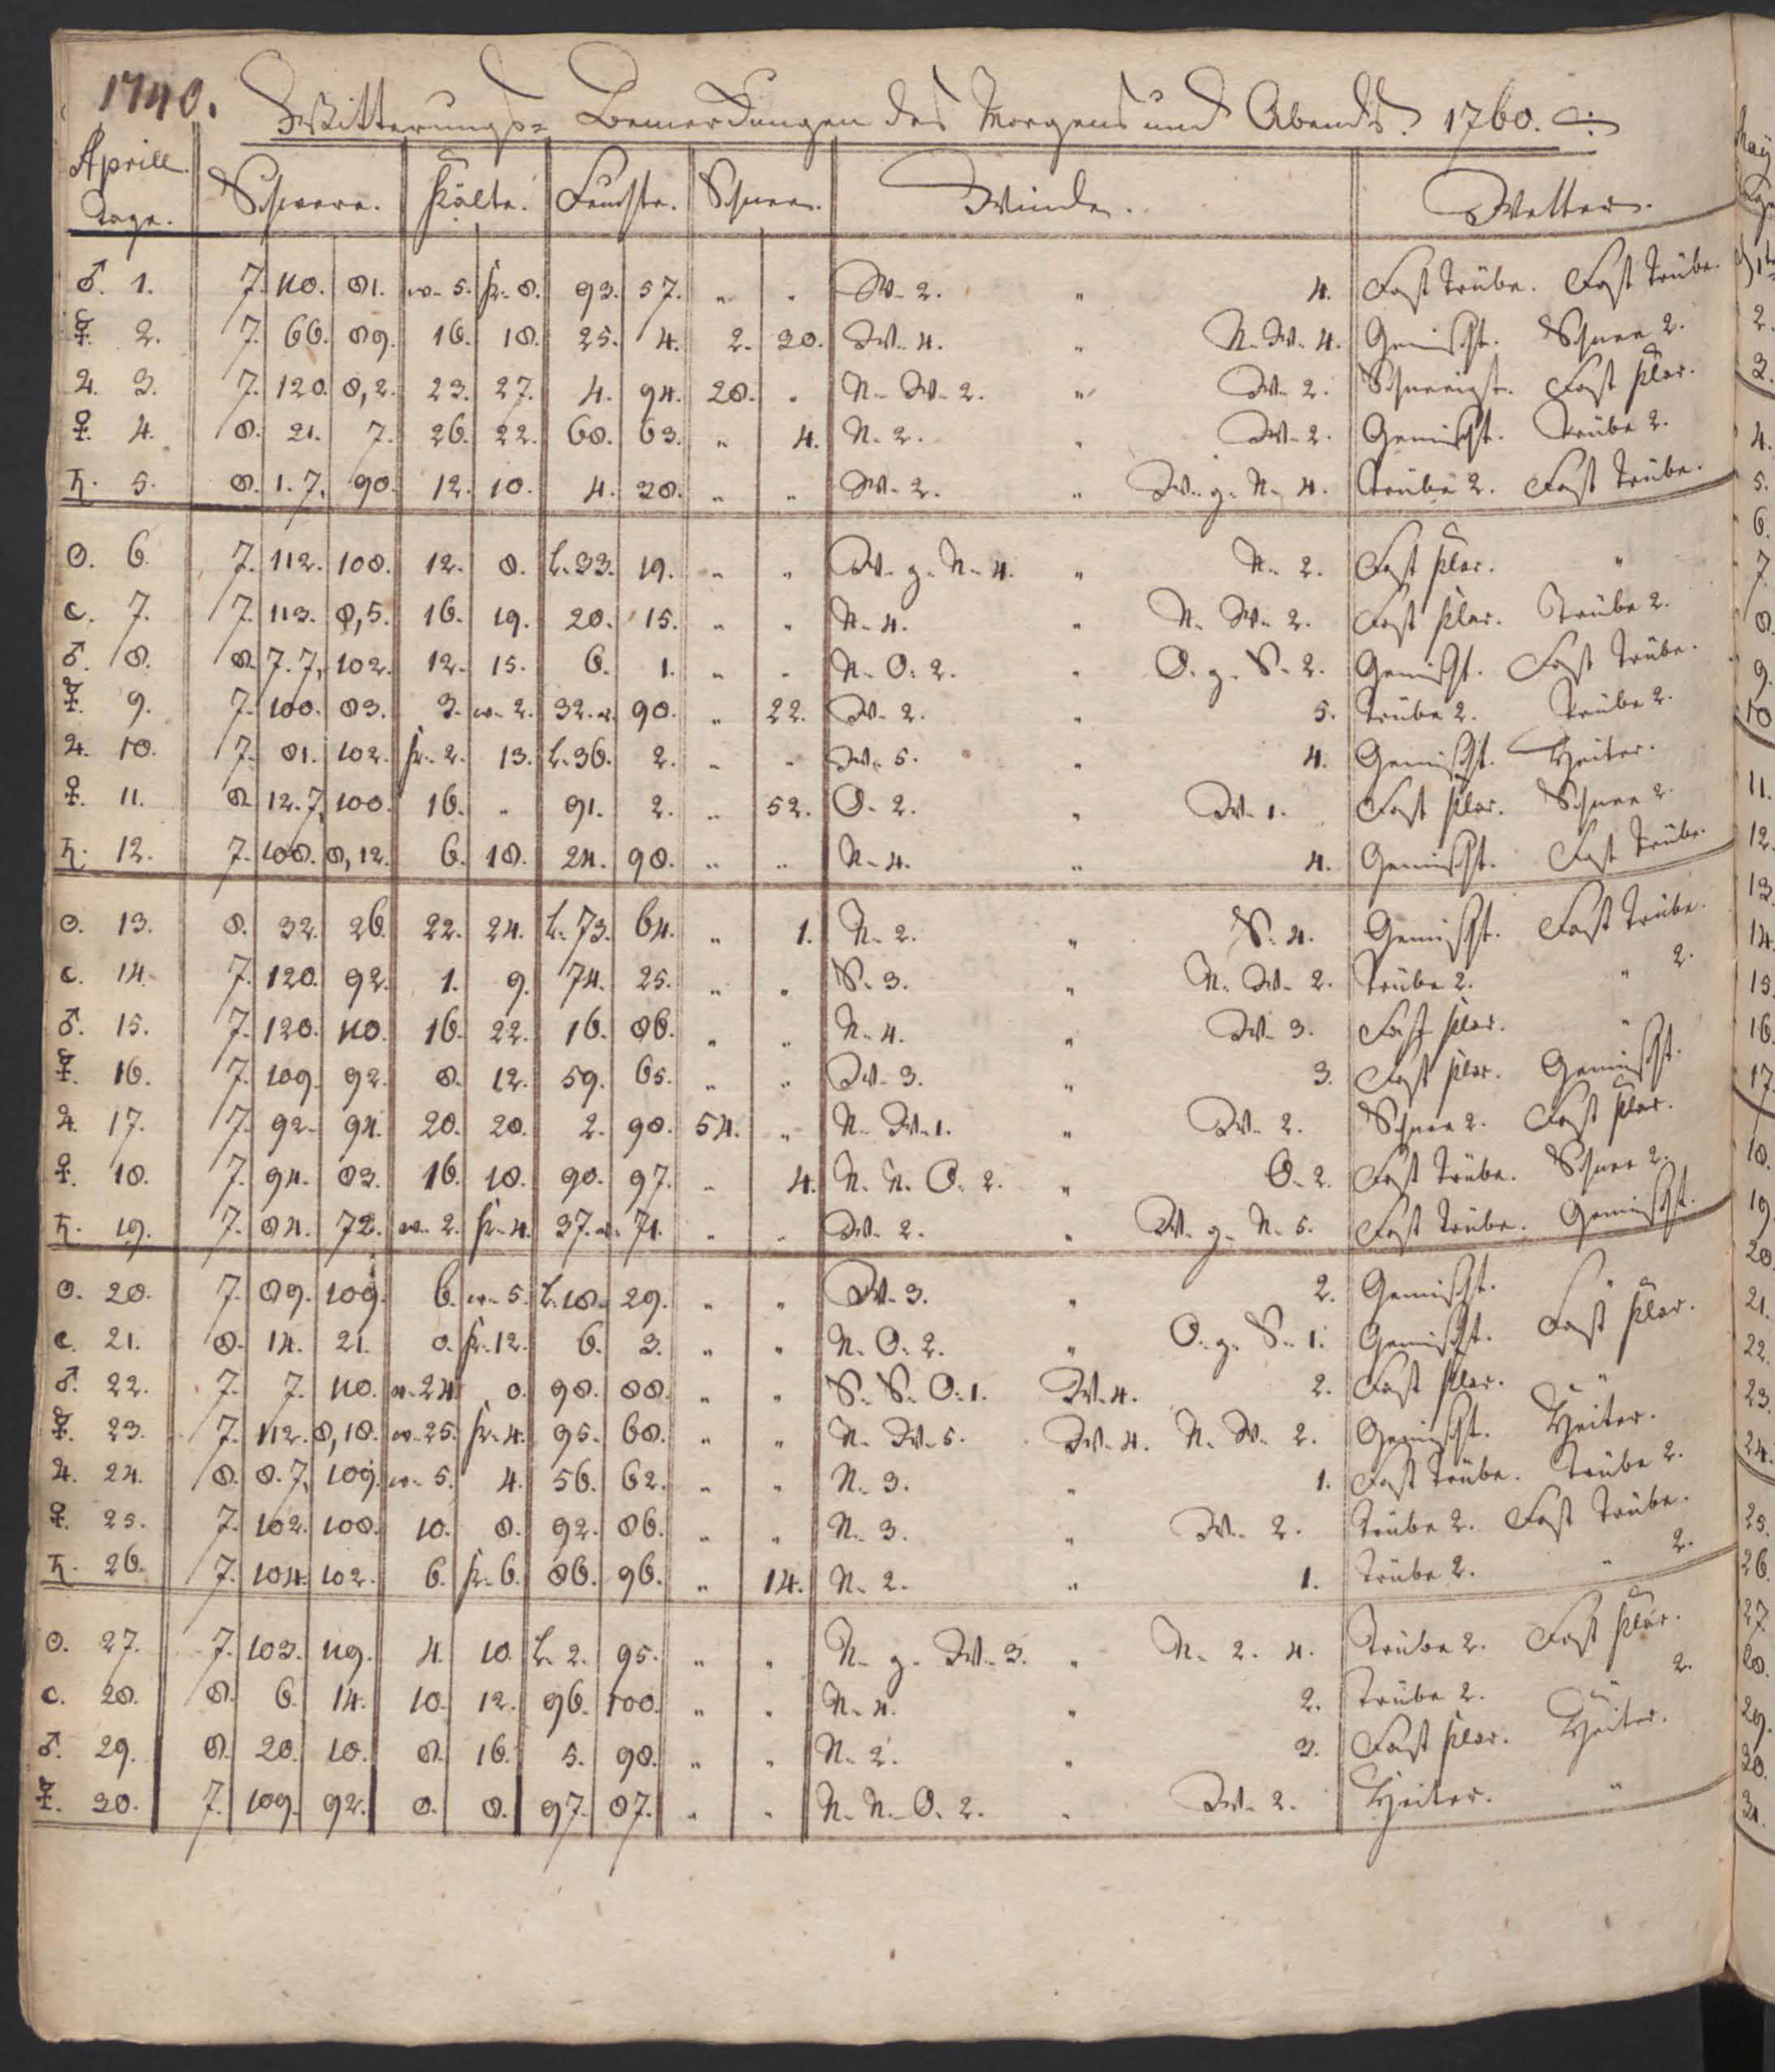 1740. Witterungs= Bemerckungen des Morgens und Abends. 1760.
Aprill. Tage. Schwere. Kälte. Feuchte. Schnee. Winde. Wetter.
♂. 1. 7. 110. 81. w. 5. k. 8. 93. 57. " " W. 2. " 4. Fast trübe. Fast trübe.
☿. 2. 7. 66. 89. 16. 18. 25. 4. 2. 30. W. 4. " N. W. 4. Gemischt. Schnee 2.
♃. 3. 7. 120. 8,2. 23. 27. 4. 94. 28. " N. W. 2. " W. 2. Schneeigt. Fast klar.
♀. 4. 8. 21. 7. 26. 22. 68. 63. " 4. N. 2. " W. 2. Gemischt. Trübe 2.
♄. 5. 8. 1. 7, 90. 12. 10. 4. 28. " " W. 2. " W. g. N. 4. Trübe 2. Fast trübe.
☉. 6. 7. 112. 108. 12. 8. L. 33. 19. " " W. g. N. 4. " N. 2. Fast klar. "
☾. 7. 7. 113. 8,5. 16. 19. 20. 15. " " N. 4. " N. W. 2. Fast klar. Trübe 2.
♂. 8. 8. 7. 7, 102. 12. 15. 6. 1. " " N. O. 2. " O. g. S. 2. Gemischt. Fast trübe.
☿. 9. 7. 100. 83. 3. w. 2. 32. 90. " 22. W. 2. " 5. Trübe 2. Trübe 2.
♃. 10. 7. 81. 102. k. 2. 13. L. 36. 2. " " W. 5. " 4. Gemischt. Heiter.
♀. 11. 8. 12. 7, 100. 16. " 91. 2. " 52. O. 2. " W. 1. Fast klar. Schnee 2.
♄. 12. 7. 108. 8, 12. 6. 18. 24. 98. " " N. 4. " 4. Gemischt. Fast trübe.
☉. 13. 8. 32. 26. 22. 24. L. 73. 64. " 1. N. 2. " S. 4. Gemischt. Fast trübe.
☾. 14. 7. 120. 92. 1. 9. 74. 25. " " S. 3. " N. W. 2. Trübe 2. " 2.
♂. 15. 7. 120. 110. 16. 22. 16. 86. " " N. 4. " W. 3. Fast klar. "
☿. 16. 7. 109. 92. 8. 12. 59. 65. " " W. 3. " 3. Fast klar. Gemischt.
♃. 17. 7. 92. 94. 20. 20. 2. 98. 54. " N. W. 1. " W. 2. Schnee 2. Fast klar.
♀. 18. 7. 94. 83. 16. 18. 90. 97. " 4. N. N. O. 2. " O. 2. Fast trübe. Schnee 2.
♄. 19. 7. 84. 72. w. 2. k. 4. 37. 71. " " W. 2. " W. g. N. 5. Fast trübe. Gemischt.
☉. 20. 7. 89. 109. 6. w. 5. L. 18. 29. " " W. 3. " 2. Gemischt. "
☾. 21. 8. 14. 21. 0. k. 12. 6. 3. " " N. O. 2. " O. g. S. 1. Gemischt. Fast klar.
♂. 22. 7. 7. 110. w. 24. 0. 98. 88. " " S. S. O. 1. W. 4. 2. Fast klar. "
☿. 23. 7. 112. 8, 18. w. 25. k. 4. 95. 68. " " N. W. 5. W. 4. N. W. 2. Gemischt. Heiter.
♃. 24. 8. 8. 7, 109. w. 5. 4. 56. 62. " " N. 3. " 1. Fast trübe. Trübe 2.
♀. 25. 7. 102. 108. 10. 8. 92. 86. " " N. 3. " W. 2. Trübe 2. Fast trübe.
♄. 26. 7. 104. 102. 6. k. 6. 86. 96. " 14. N. 2. " 1. Trübe 2. " 2.
☉. 27. 7. 103. 119. 4. 10. L. 2. 95. " " N. g. W. 3. " N. 2. 4. Trübe 2. Fast klar.
☾. 28. 8. 6. 14. 10. 12. 96. 100. " " N. 4. " 2. Trübe 2. " 2.
♂. 29. 8. 20. 10. 8. 16. 5. 98. " " N. 2. " 3. Fast klar. Heiter.
☿. 30. 7. 109. 92. 0. 8. 97. 87. " " N. N. O. 2. " W. 2. Heiter. "